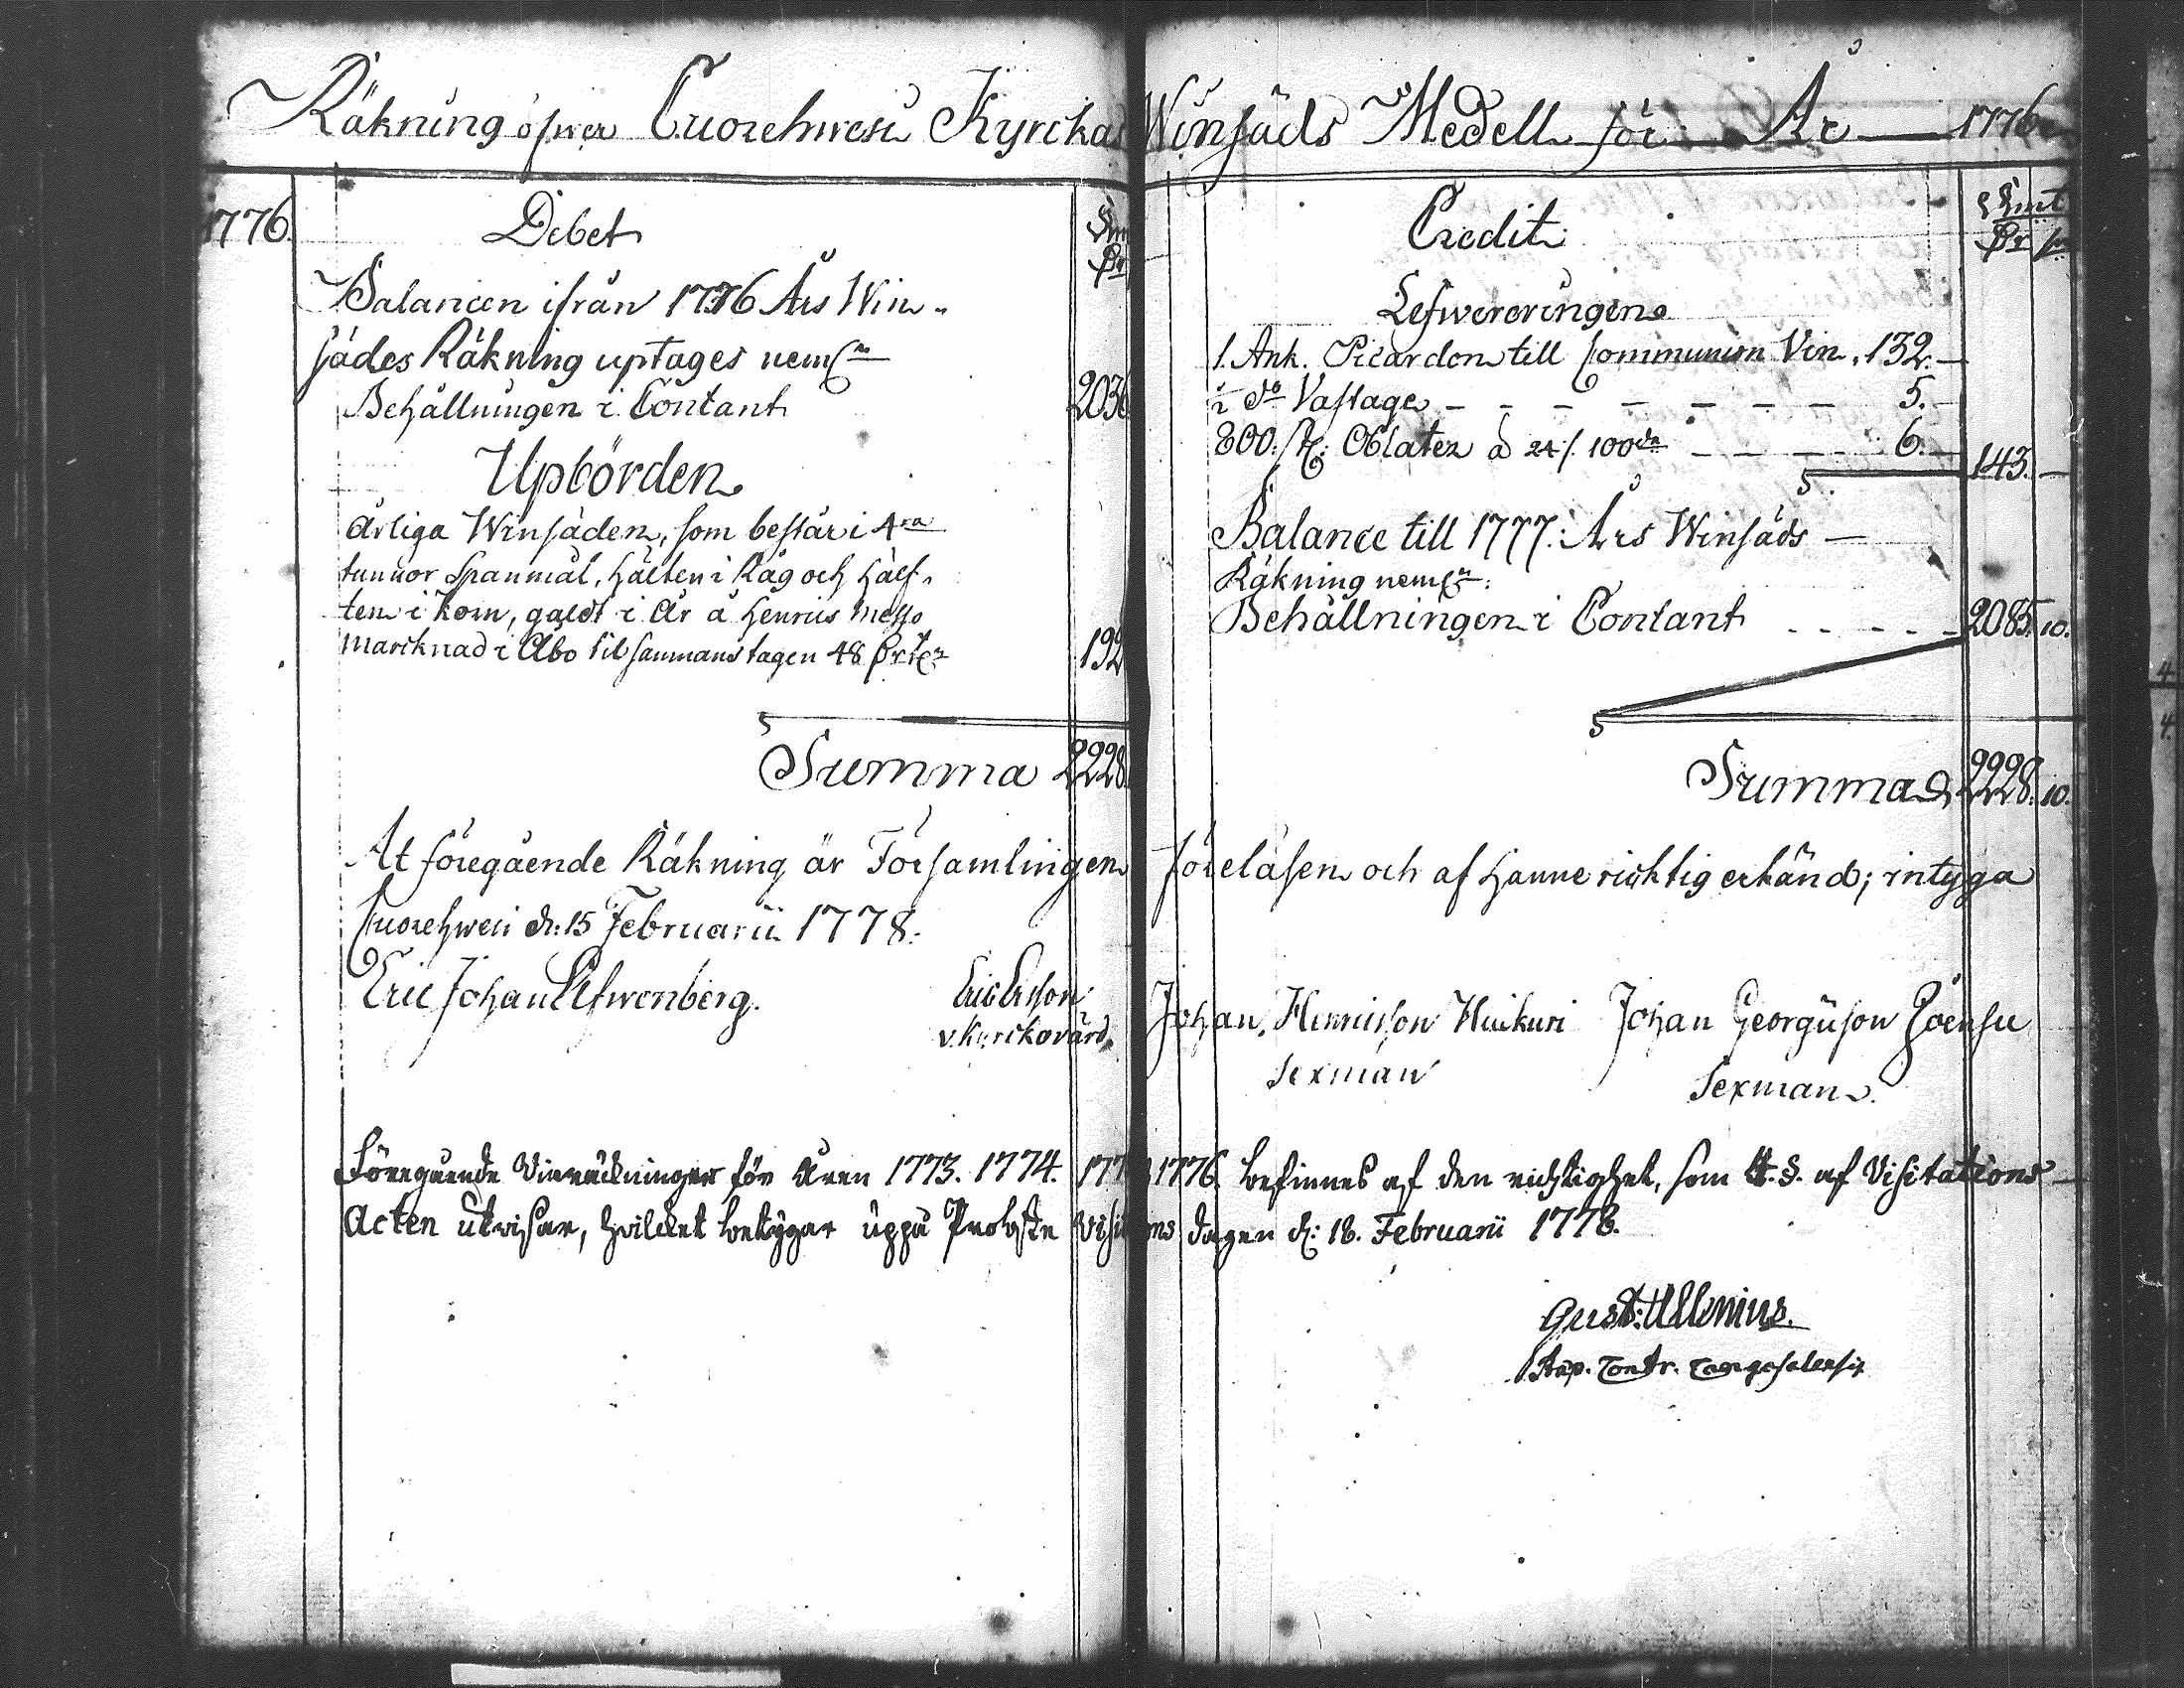 Räkning öfwer Cuorehwesi Kyrckas Winsäds Medell för År 1776
1776.
Debet
Balancen ifrån 1776 Års Win-
sädes Räkning uptages neml
Behållningen i Contant 2036
Upbörden
Årliga Winsäden, som består i 4ra
tunnor Spanmål, hälften i Råg och hälf-
ten i Korn, galdt i År å Henrici Messo
Marcknad i Åbo tilsammanstagen 48 192
Summa 2228.
Credit
Lefwereringen
1. Ank. Picardon till Communion Vin. 132.—
1 do Vastage – – – – – – – 5.–
800. st: Oblater à 24/. 100de – – – – 6.–
143.—
Balance till 1777. Års Winsäds —
Räkning neml:
Behållningen i Contant - - - - - 2085. 10.
Summa 2228. 10.
At föregående Räkning är Församlingen föreläsen och af Henne richtig erkänd; intyga
Cuorehwesi d: 15 Februarii 1778.
Eric Johan Lefwenberg.
Eric Ersson
v. Kyrckovärd
Johan Henricsson Huikuri
Sexman
Johan Georgiison
Sexman.
Föregående Vinräckningar för Åren 1773. 1774. 177 1776. befinnes af den richtighet, som §. af Visitations
Acten utvisar, hvilcket betygar uppå Probste Visit ons dagen d: 18. Februarii 1778.
Gust: Allenius.